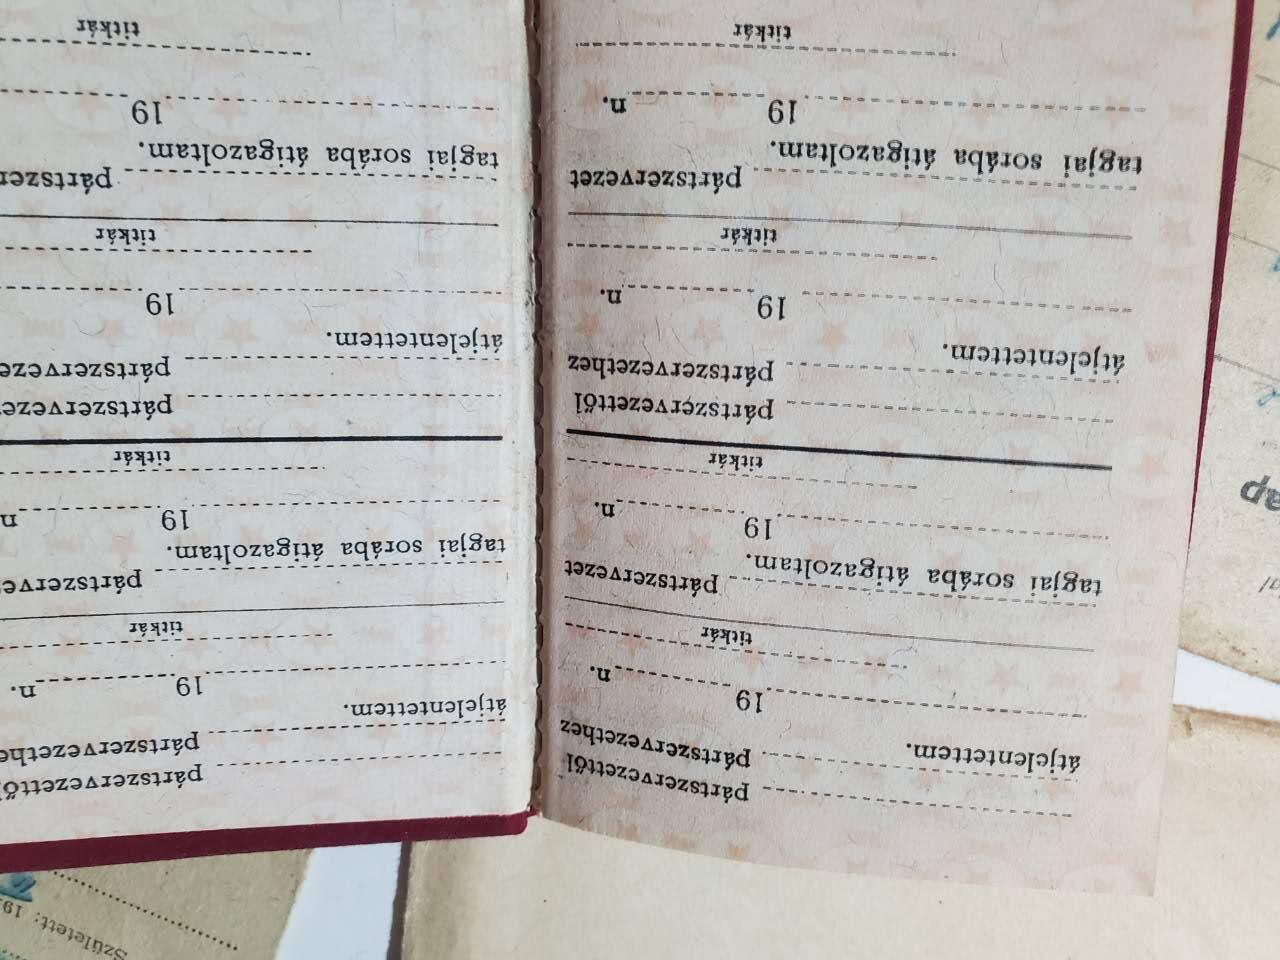 pártszervezettől
pártszervezethez
átjelentettem.
19 n.
titkár
pártszervezet
tagjai sorába átigazoltam.
19 n.
titkár
pártszervezettől
pártszervezethez
átjelentettem.
19 n.
titkár
pártszervezet
tagjai sorába átigazoltam.
19 n.
titkár
pártszervezettő
pártszervezethe
átjelentettem.
19 n.
titkár
pártszerve
tagjai sorába átigazoltam.
19 n
titkár
pártszerveze
pártszerveze
átjelentettem.
19
titkár
pártszer
tagjai sorába átigazoltam.
19
titkár
Született: 19
ap